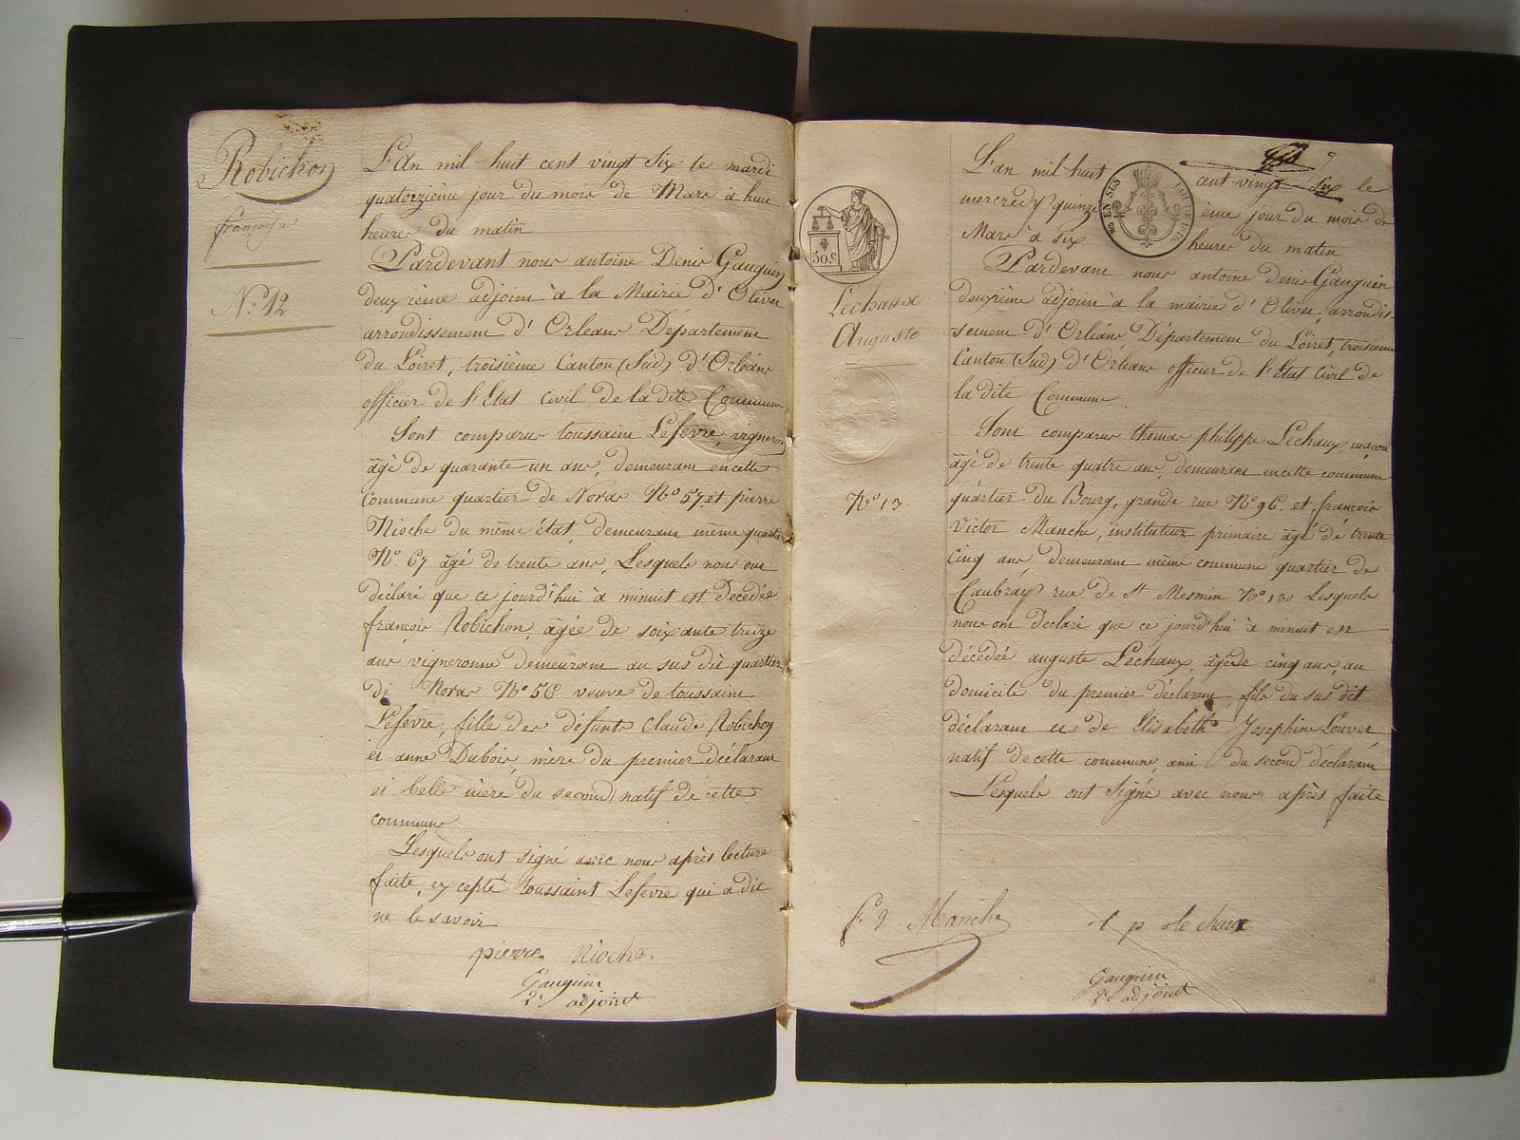 Robichon
françoise
N.º 12
L'An mil huit cent vingt six le mardi
quatorzième jour du mois de Mars à huit
heures du matin
Pardevant nous antoine Denis Gauguin
deuxième adjoint à la Mairie d'Olivet
arrondissement d'Orleans Département
du Loiret, troisième Canton (Sud) d'Orléans
officier de l'Etat Civil de la dite Commune
Sont comparus toussaint Lefevre, vigneron
âgé de quarante un ans, demeurant en cette
Commune quartier de Noras Nº 57. et pierre
Nioche du même état, demeurant même quartier
Nº 67 âgé de trente ans, Lesquels nous ont
déclaré que ce jourd'hui à minuit est Decédée
francoise Robichon, âgée de soixante treize
ans vigneronne demeurant au sus dit quartier
de Noras Nº 56 veuve de toussaint
Lefevre, fille des défunts Claude Robichon
et anne Dubois, mère du premier déclarant
et belle mère du second, natif de cette
commune
Lesquels ont signé avec nous après lecture
faite, excepté toussaint Lefevre qui a dit
ne le savoir
pierre Nioche.
Gauguin
2e adjoint
50 C
Lechaux
Auguste
Nº 13
L'an mil huit cent vingt six le
mercredy quinzième jour du mois de
Mars à six heures du matin
Pardevant nous antoine denis Gauguin
deuxième adjoint à la mairie d'Olivet, arrondis-
sement d'Orléans, Département du Loiret, troisième
Canton (Sud) d'Orleans officier de l'Etat Civil de
la dite Commune
Sont comparus thomas philippe Lechaux, maçon
âgé de trente quatre ans, demeurant en cette commune
quartier du Bourg, grande rue Nº 96. et, françois
Victor Manche, instituteur primaire âgé de trente
cinq ans, demeurant même commune quartier de
Caubray rue de St Mesmin Nº 130 Lesquels
nous ont déclaré que ce jourd'hui à minuit est
décédé auguste Lechaux, âgé de cinq ans, au
domicile du premier déclarant, fils du sus dit
déclarant et de Elisabeth Josephine Louvet
natif de cette commune, ami du second déclarant
Lesquels ont signé avec nous après faite
F V Manche
t p le chaux
Gauguin
2e adjoint